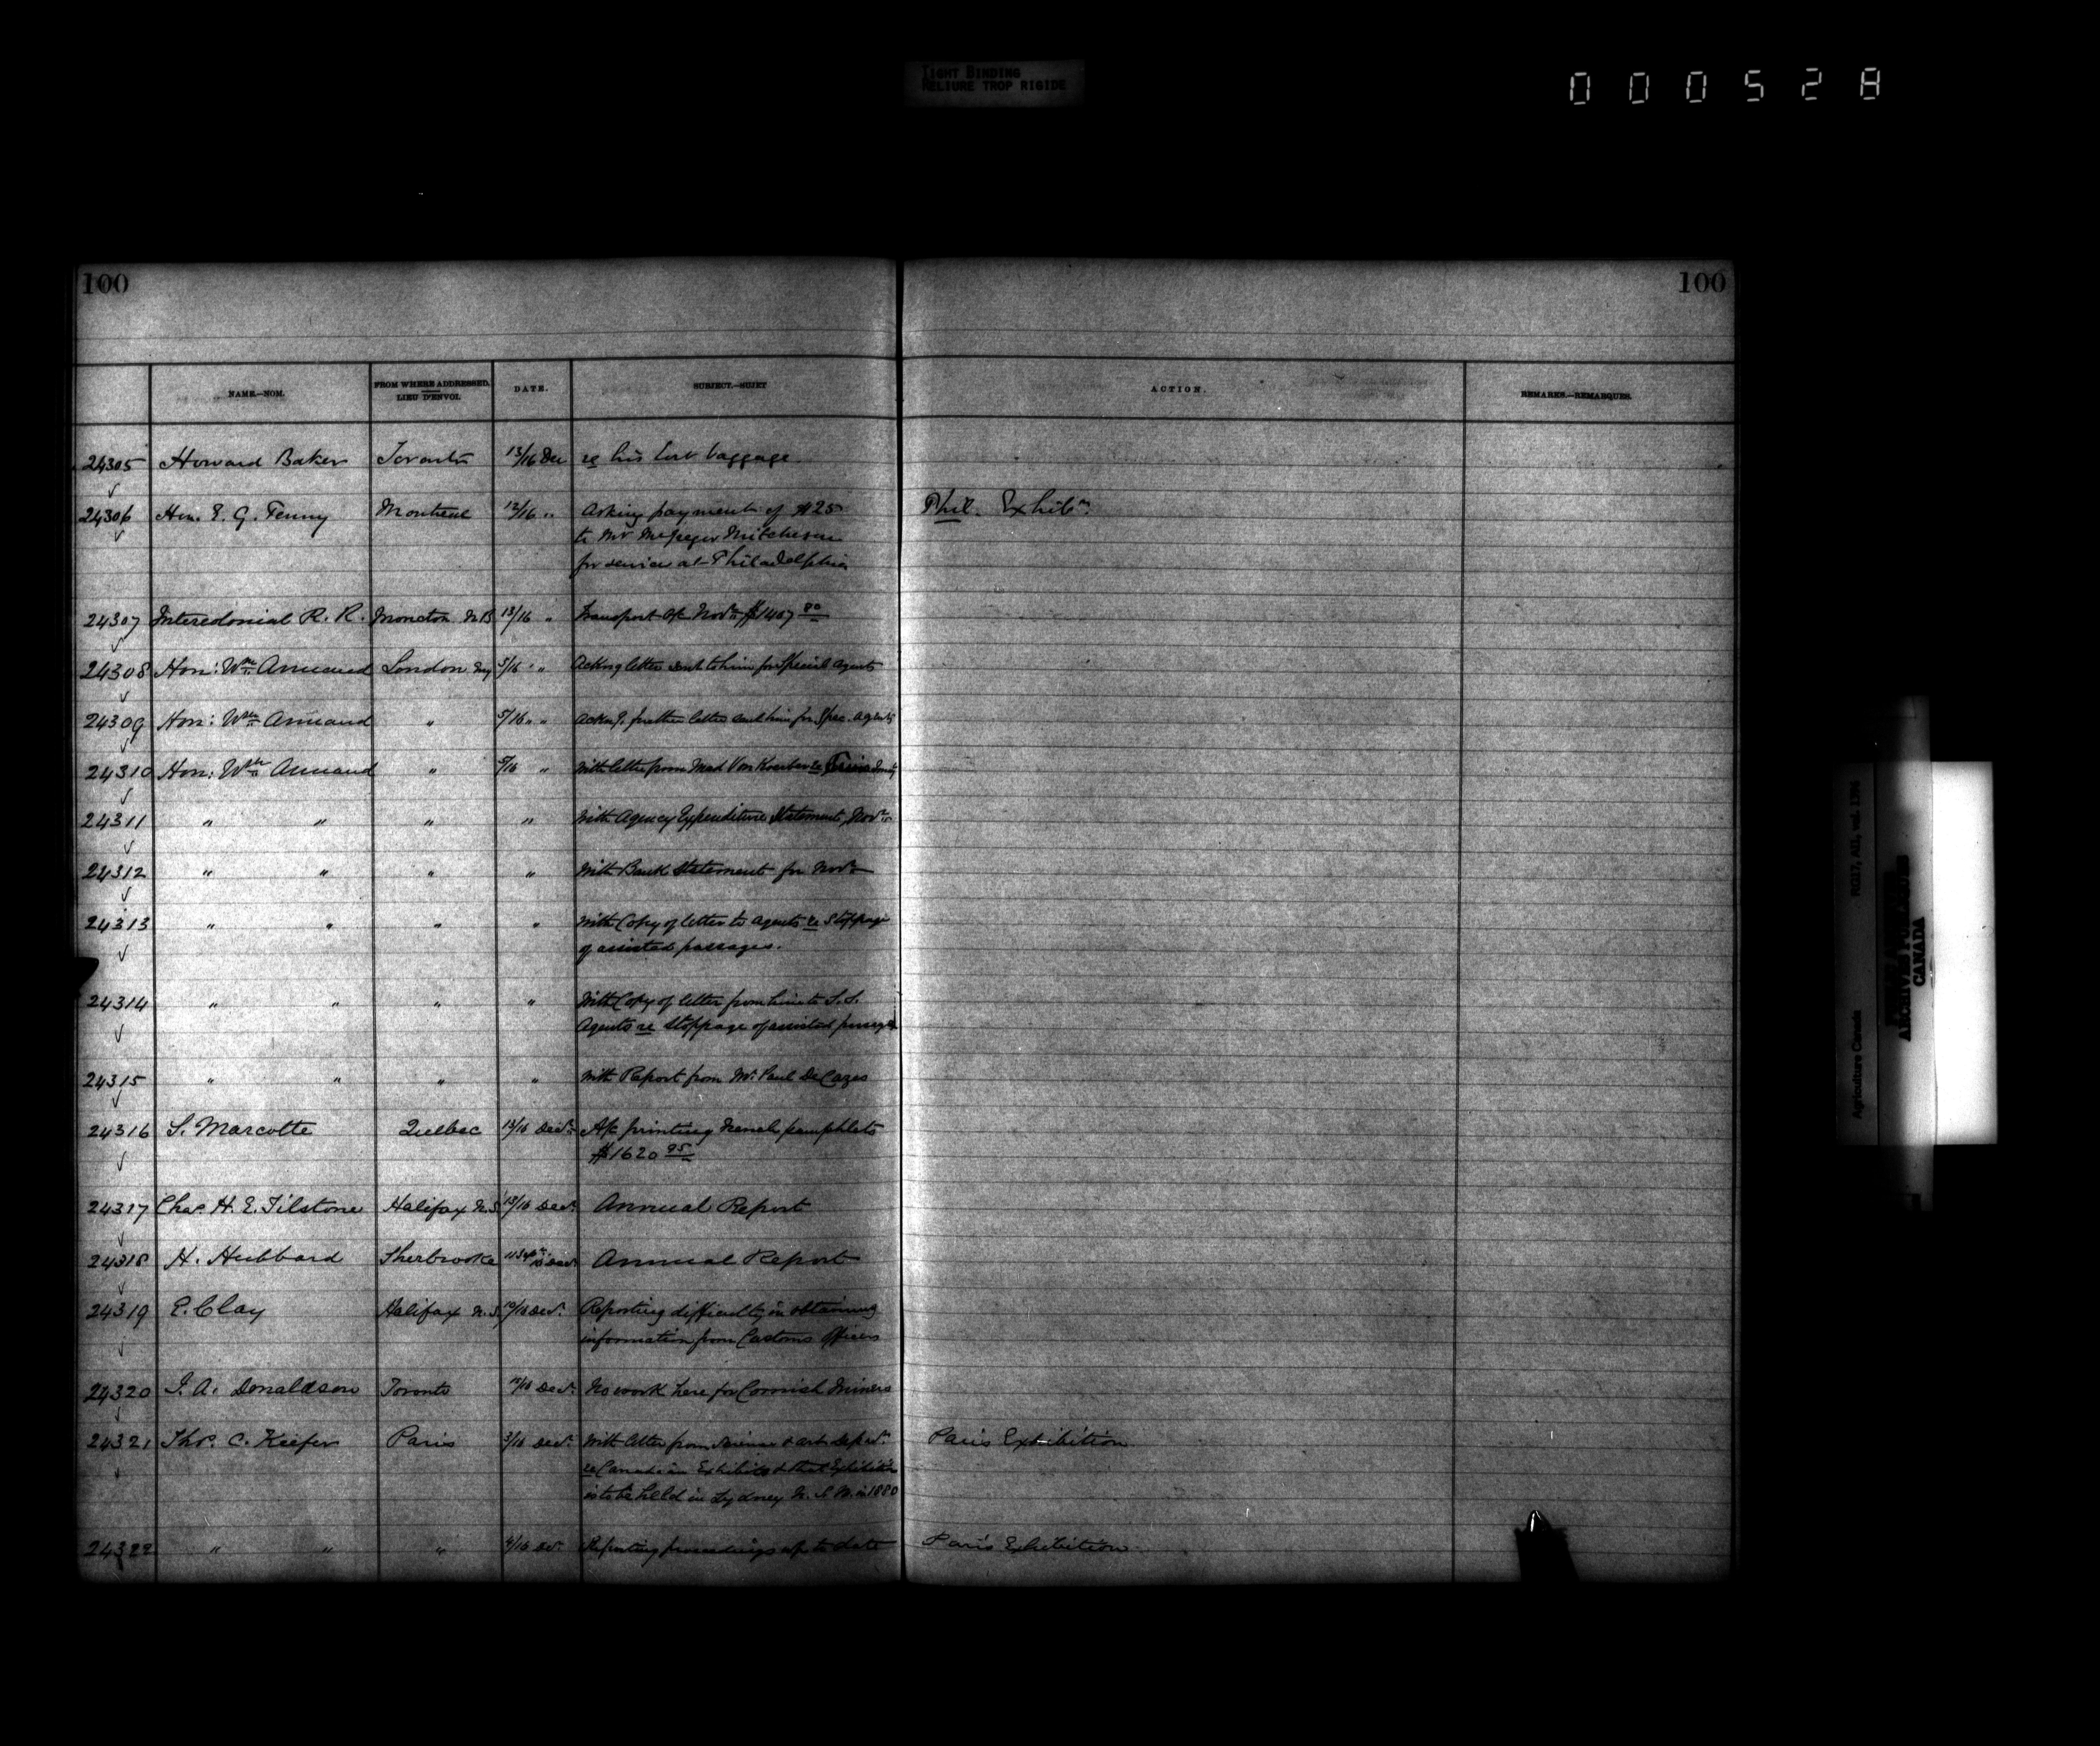 TIGHT BINDING
RELIURE TROP RIGIDE
000528
100
100
NAME.—NOM.
FROM WHERE ADDRESSED.
LIEU D'ENVOI.
DATE.
SUBJECT.—SUJET
ACTION.
REMARKS.—REMARQUES.
24305 Howard Baker Toronto 13/16 Dec re his lost baggage
24306 Hon. E. G. Penny Montreal 12/16 " Asking payment of $25 Phil. Exhibn.
to Mr McGregor Mitcheson
for services at Philadelphia
24307 Intercolonial R. R. Moncton N.B 13/16 " Transport a/c Novr $1407 80
24308 Hon: Wm Annand London Eng 5/16 " Ackng letter sent to him for Special agents
24309 Hon: Wm Annand " 5/16 " Ackng. further letter sent him for Spec. agents
24310 Hon: Wm Annand " 5/16 " With letter from Mad Von Koerber re
24311 " " " " With Agency Expenditure Statement, Novr
24312 " " " " With Bank Statement for Novr
24313 " " " " With Copy of letter to agents re stoppage
of assisted passages.
24314 " " " " With Copy of letter from him to S.S.
Agents re stoppage of assisted passages
24315 " " " " With Report from Mr Paul De Cazes
24316 S. Marcotte Quebec 13/16 Decr A/c printing French pamphlets
$1620 95
24317 Chas. H. E. Tilstone Halifax N.S. 13/16 Decr Annual Report
24318 H. Hubbard Sherbrooke Annual Report
24319 E. Clay Halifax N.S. Decr. Reporting difficulty in obtaining
information from Customs Officers
24320 J. A. Donaldson Toronto Decr. No work here for Cornish Miners
24321 Thos. C. Keefer Paris 3/16 Decr. With letter from Science & art Depart. Paris Exhibition
re Canadian Exhibits & that Exhibition
is to be held in Sydney N. S. W. in 1880
24322 " " " 4/16 Decr. Reporting proceedings up to date Paris Exhibition
Agriculture Canada
RG17, AII, vol. 1396
PUBLIC ARCHIVES
ARCHIVES PUBLIQUES
CANADA